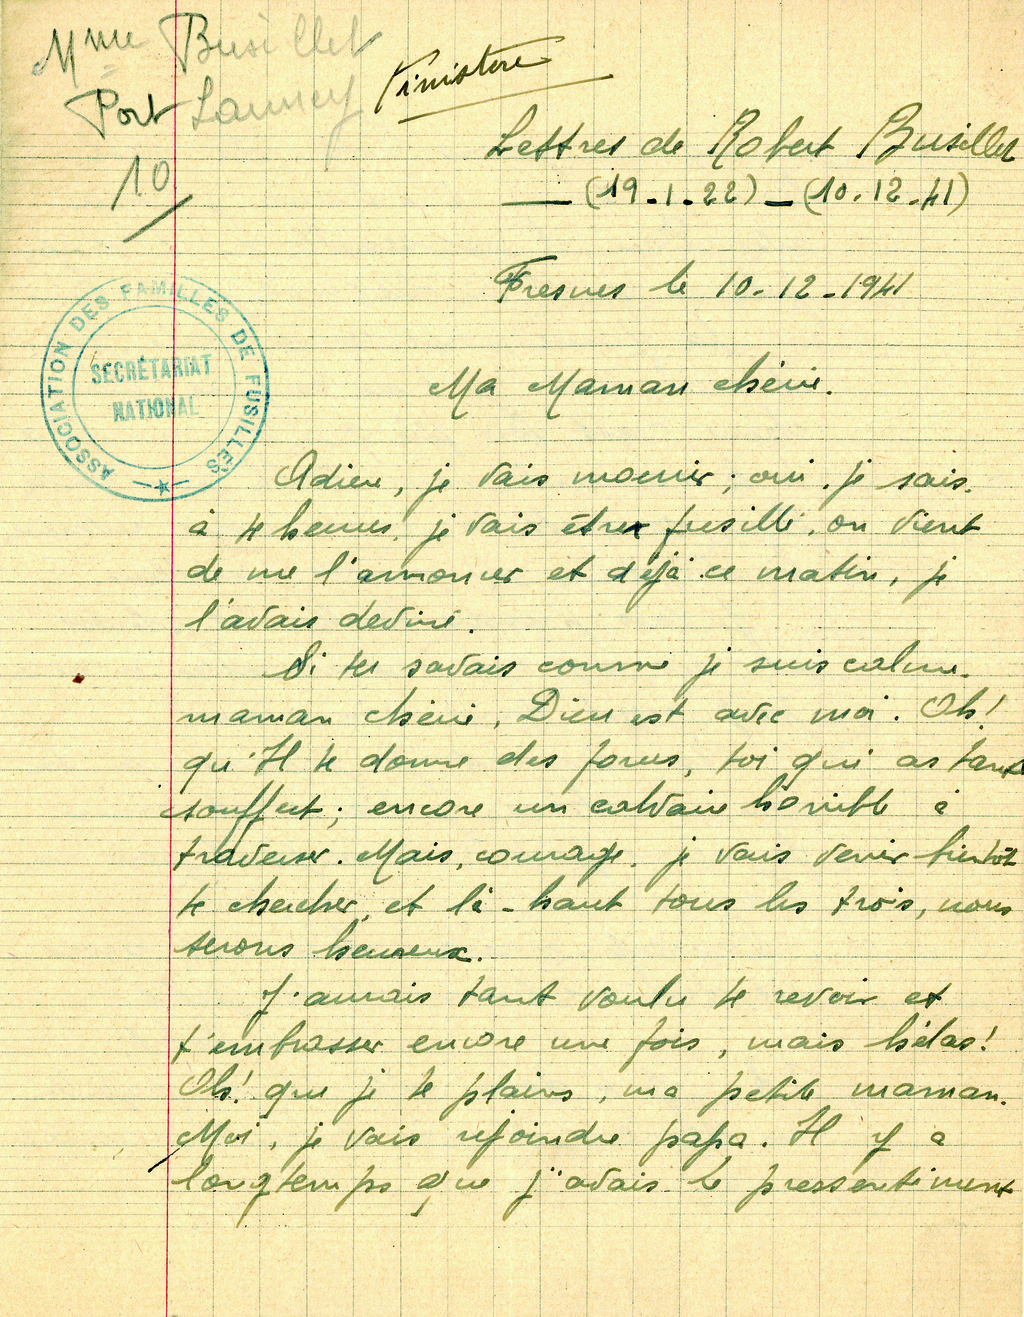 Mme Busillet
Port Launay
Finistère
10
Lettres de Robert Busillet
— (19.1.22) — (10.12.41)
Fresnes le 10-12-1941
ASSOCIATION DES FAMILLES DE FUSILLÉS
SECRÉTARIAT
NATIONAL
Ma Maman chérie.
Adieu, je vais mourir ; oui, je sais.
à 4 heures, je vais être fusillé, on vient
de me l'annoncer et déjà ce matin, je
l'avais deviné.
Si tu savais comme je suis calme.
maman chérie, Dieu est avec moi. Oh !
qu'Il te donne des forces, toi qui as tant
souffert ; encore un calvaire horrible à
traverser. Mais, courage, je vais venir bientôt
te chercher, et là-haut tous les trois, nous
serons heureux.
J'aurais tant voulu te revoir et
t'embrasser encore une fois, mais hélas !
Oh ! que je te plains, ma petite maman.
Moi, je vais rejoindre papa. Il y a
longtemps que j'avais le pressentiment